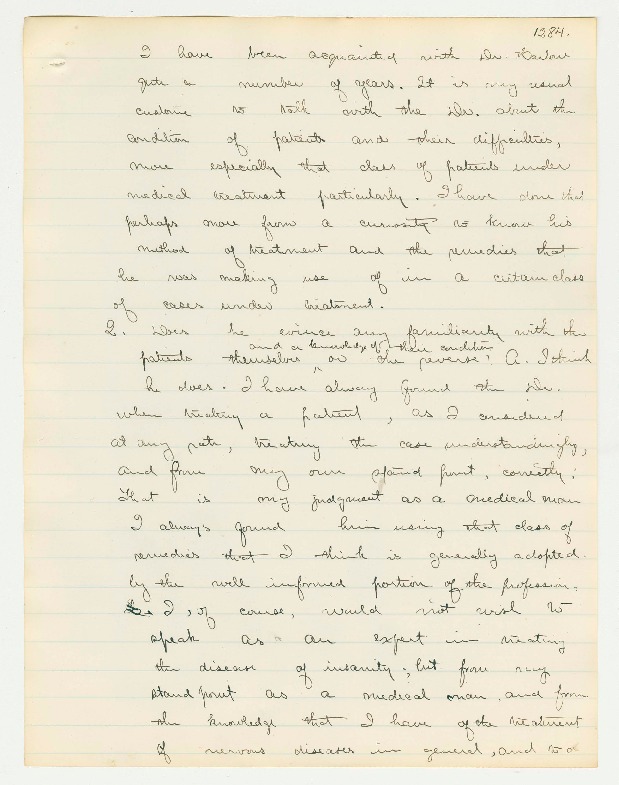 1284.
I have been acquainted with Dr. Harlow
quite a number of years. It is my usual
custom to talk with the Dr. about the
condition of patients and their difficulties,
more especially that class of patients under
medical treatment particularly. I have done that
perhaps more from a curiosity to know his
method of treatment and the remedies that
he was making use of in a certain class
of cases under treatment.
Q. Does he evince any familiarity with the
and a knowledge of their condition
patients themselves or the reverse? A. I think
he does. I have always found the Dr.
when treating a patient, as I considered
at any rate, treating the case understandingly,
and from my own stand point, correctly;
That is my judgment as a medical man
I always found him using that class of
remedies that I think is generally adopted
by the well informed portion of the profession.
I, of course, would not wish to
speak as an expert in treating
the disease of insanity; but from my
stand point as a medical man and from
the knowledge that I have of the treatment
of nervous diseases in general, and to a